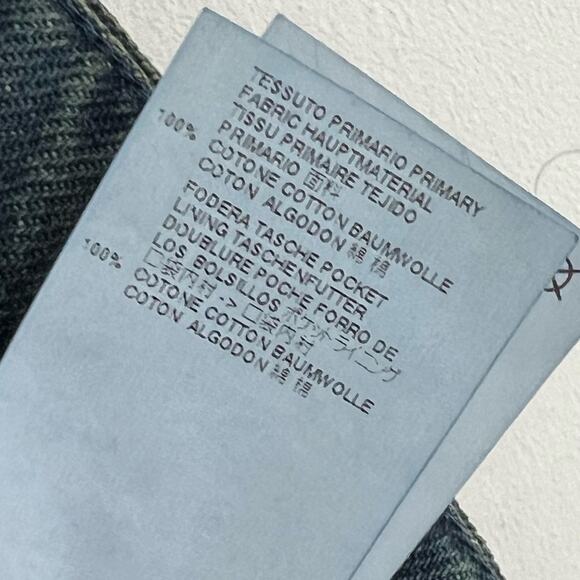 TESSUTO PRIMARIO PRIMARY
FABRIC HAUPTMATERIAL
TISSU PRIMAIRE TEJIDO
PRIMARIO 面料
100% COTONE COTTON BAUMWOLLE
COTON ALGODON 綿 棉
FODERA TASCHE POCKET
LINING TASCHENFUTTER
DOUBLURE POCHE FORRO DE
LOS BOLSILLOS ポケットライニング
口袋内衬 -> 口袋内衬
100% COTONE COTTON BAUMWOLLE
COTON ALGODON 綿 棉